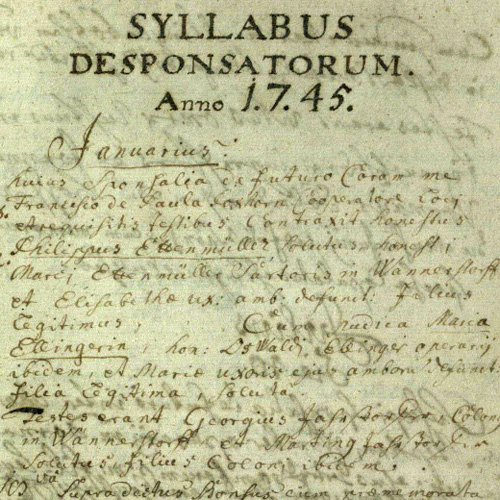 SYLLABUS
DESPONSATORUM.
Anno 1.7.45.
Januarius.
huius Sponsalia de futuro Coram me
Francisco de Paula Cooperatore Loci
et requisitis testibus Contraxit honestus
Philippus Ettenmüller, solutus, honesti
Marci Ettenmüller Sartoris in Wannerstorff
et Elisabethæ ux: amb: defunct: filius
legitimus, Cum pudica Maria
Ellingerin, hon: Oswaldi Ellinger operarij
ibidem, et Mariæ uxoris ejus amboru defunct:
filia legitima, soluta.
Testes erant Georgius Colon
in Wannerstorff et Marting
Solutus filius Coloni ibidem.
Supradictus Sponsus cum præmemorata